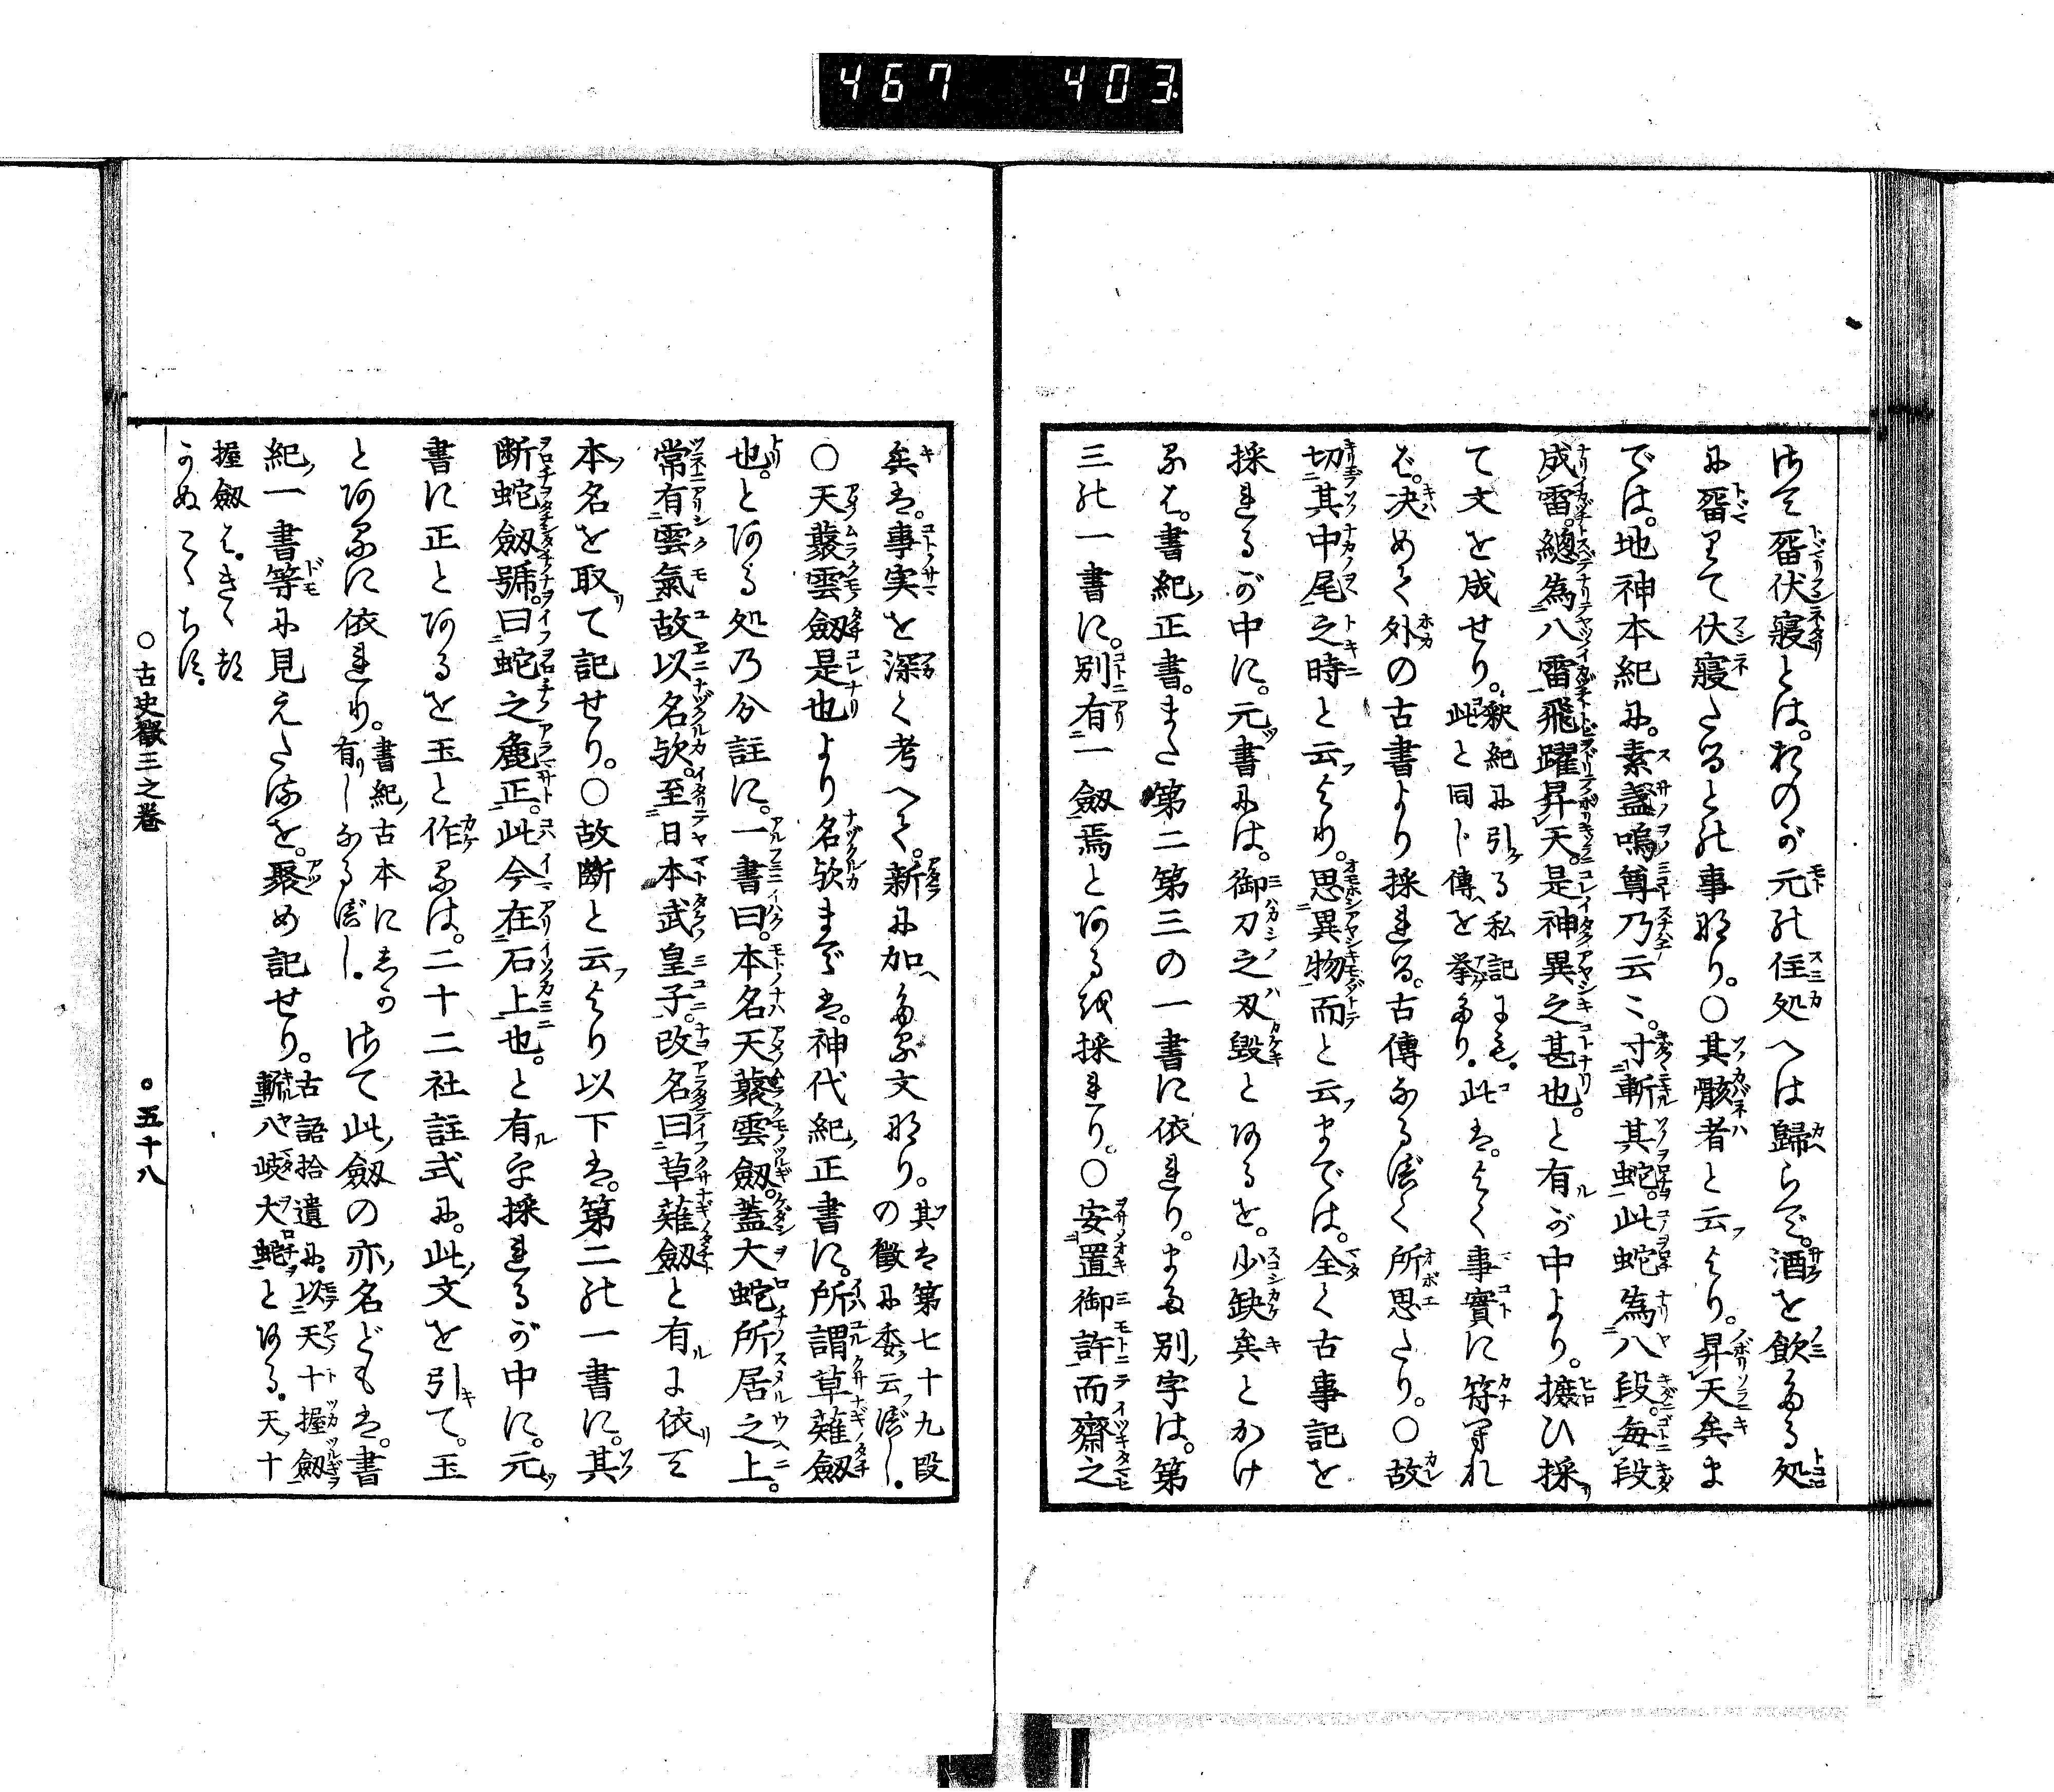 467 403
さて畱伏寢とは。おのが元の住処へは歸らで。酒を飲たる処
に畱りて伏寢たるとの事なり。〇其骸者と云より。昇天矣ま
では。地神本紀に。素盞嗚尊乃云々。寸斬其蛇。此蛇為八段。每段
成雷。總為八雷飛躍昇天。是神異之甚也。と有が中より。摭ひ採
て文を成せり。
釈紀に引る私記にも。
此と同じ傳を挙たり。
此は。よく事實に符れ
ば。决めて外の古書より採れる。古傳なるべく所思たり。〇故
切其中尾之時と云より。思異物而と云までは。全く古事記を
採れるが中に。元書には。御刀之刄毀とあるを。少缺矣とかけ
るは。書紀正書。また第二第三の一書に依れり。また別字は。第
三の一書に。別有一劔焉とあるを採れり。〇安置御許而齋之
矣は。事実を深く考へて。新に加へたる文なり。
其は第七十九段
の徴に委云べし。
〇天藂雲劔是也より名欤までは。神代紀正書に。所謂草薙劔
也。とある処の分註に。一書曰。本名天藂雲劔。蓋大蛇所居之上。
常有雲氣故以名欤。至日本武皇子。改名曰草薙劔と有に依て
本名を取て記せり。〇故断と云より以下は。第二の一書に。其
断蛇劔號。曰蛇之麁正。此今在石上也。と有を採れるが中に。元
書に正とあるを玉と作るは。二十二社註式に。此文を引て。玉
とあるに依れり。
書紀古本にしか
有しなるべし。
さて此劔の亦名どもは。書
紀一書等に見えたるを。聚め記せり。
古語拾遺に。以天十握劔
斬八岐大蛇とある。天十
握劔は。きく
うぬこゝちす。
〇古史徴三之巻
〇五十八